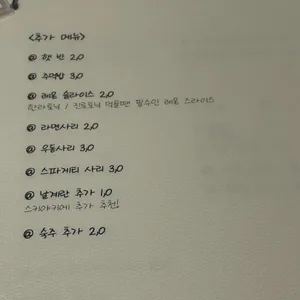 <추가 메뉴>
@ 햇반 2,0
@ 주먹밥 3,0
@ 레몬 슬라이스 2,0
한라토닉 / 진로토닉 먹을땐 필수인 레몬 슬라이스
@ 라면사리 2,0
@ 우동사리 3,0
@ 스파게티 사리 3,0
@ 날계란 추가 1,0
스키야키에 추가 추천!
@ 숙주 추가 2,0